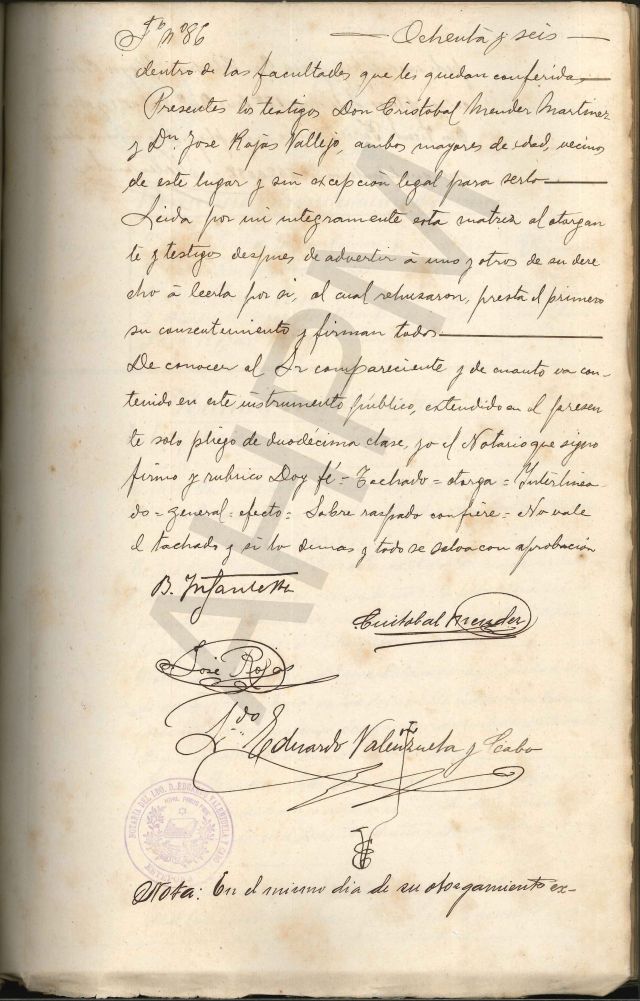 Fº nº 86 — Ochenta y seis —
dentro de las facultades que les quedan conferidas
Presentes los testigos Don Cristobal Mender Martinez
y Dn. Jose Rojas Vallejo, ambos mayores de edad, vecinos
de este lugar y sin excepción legal para serlo
Leida por mi integramente esta matriz al otorgan
te y testigos despues de advertir à uno y otros de su dere
cho à leerla por si, al cual rehusaron, presta el primero
su consentimiento y firman todos
De conocer al Sr compareciente y de cuanto va con-
tenido en este instrumento público, extendido en el presen
te solo pliego de duodécima clase, yo el Notario que signo
firmo y rubrico Doy fé = Tachado = otorga = Interlinea
do = general = efecto = Sobre raspado confiere = No vale
el tachado y si lo demas y todo se salva con aprobación
B. Infante
Cristobal Mender
José Rojas
Ldo Eduardo Valenzuela y Cabo
NOTARIA DEL LDO. D. EDUARDO VALENZUELA Y CABO
ESTEPONA
Nota: En el mismo dia de su otorgamiento ex-
AHPM